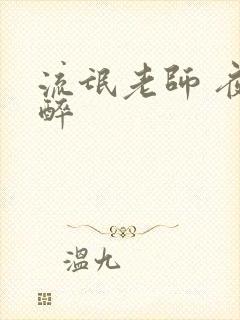 流氓老師 夜
醉
溫九